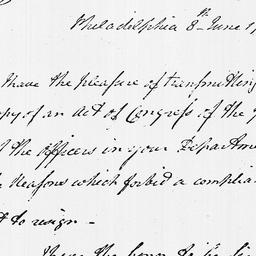 Philadelphia 8th June 1
I have the pleasure of transmitting
opy of an Act of Congress of the 7
the Officers in your Departme
e Reasons which forbid a complia
t to resign —
have the honor to be